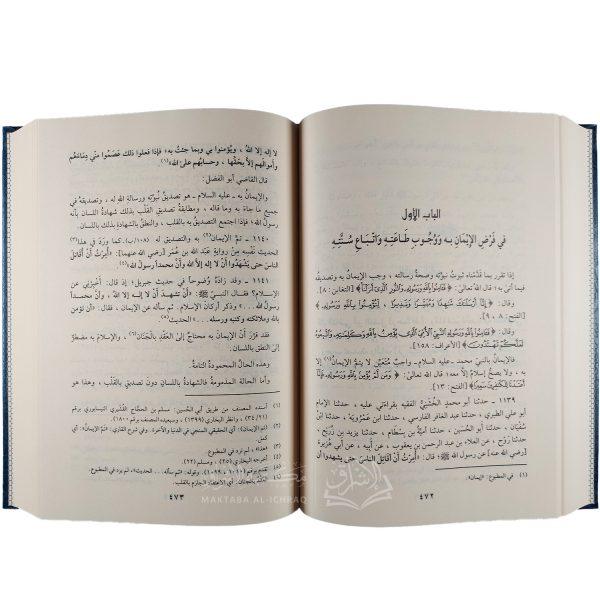 الباب الأول
في فرض الإيمان به ووجوب طاعته واتباع سنته
إذا تقرر بما قدمناه ثبوت نبوته وصحة رسالته ، وجب الإيمان به وتصديقه
فيما أتى به؛ قال الله تعالى: ﴿فَآمِنُوا بِاللَّهِ وَرَسُولِهِ وَالنُّورِ الَّذِي أَنزَلْنَا﴾ [التغابن: ٨].
وقال: ﴿إِنَّا أَرْسَلْنَاكَ شَاهِدًا وَمُبَشِّرًا وَنَذِيرًا ۝ لِتُؤْمِنُوا بِاللَّهِ وَرَسُولِهِ﴾
[الفتح: ٨ ، ٩].
وقال: ﴿فَآمِنُوا بِاللَّهِ وَرَسُولِهِ النَّبِيِّ الْأُمِّيِّ الَّذِي يُؤْمِنُ بِاللَّهِ وَكَلِمَاتِهِ وَاتَّبِعُوهُ
لَعَلَّكُمْ تَهْتَدُونَ﴾ [الأعراف: ١٥٨].
فالإيمان بالنبي محمد -عليه السلام- واجب متعين لا يتم الإيمان(١) إلا
به ، ولا يصح إسلام إلا معه؛ قال الله تعالى: ﴿وَمَن لَّمْ يُؤْمِن بِاللَّهِ وَرَسُولِهِ فَإِنَّا
أَعْتَدْنَا لِلْكَافِرِينَ سَعِيرًا﴾ [الفتح: ١٣].
١١٣٩ - حدثنا أبو محمد الخشني الفقيه بقراءتي عليه ، حدثنا الإمام
أبو علي الطبري ، حدثنا عبد الغافر الفارسي ، حدثنا ابن عمرويه ، حدثنا
ابن سفيان ، حدثنا أبو الحسين، حدثنا أمية بن بسطام ، حدثنا يزيد بن زريع ،
حدثنا روح ، عن العلاء بن عبد الرحمن بن يعقوب ، عن أبيه ، عن أبي هريرة
[رضي الله عنه] عن رسول الله ﷺ؛ قال: «أمرت أن أقاتل الناس حتى يشهدوا أن
(١) في المطبوع: «إيمان».
٤٧٢
لا إله إلا الله ، ويؤمنوا بي وبما جئت به؛ فإذا فعلوا ذلك عصموا مني دماءهم
وأموالهم إلا بحقها ، وحسابهم على الله»(١)
قال القاضي أبو الفضل:
والإيمان به - عليه السلام - هو تصديق نبوته ورسالة الله له ، وتصديقه في
جميع ما جاء به وما قاله ، ومطابقة تصديق القلب بذلك شهادة اللسان بأنه
رسول الله؛ فإذا اجتمع التصديق به بالقلب ، والنطق بالشهادة بذلك باللسان.
١١٤٠ - تم الإيمان(٢) به والتصديق له (١٠٨/ب). كما ورد في هذا(٣)
الحديث نفسه من رواية عبد الله بن عمر [رضي الله عنهما]: «أمرت أن أقاتل
الناس حتى يشهدوا أن لا إله إلا الله وأن محمداً رسول الله»(٤)
١١٤١ - وقد زاده وضوحاً في حديث جبريل؛ إذ قال: أخبرني عن
الإسلام؟ فقال النبي ﷺ: «أن تشهد أن لا إله إلا الله ، وأن محمداً
رسول الله...» وذكر أركان الإسلام. ثم سأله عن الإيمان ، فقال: «أن تؤمن
بالله وملائكته وكتبه ورسله...» الحديث(٥)
فقد قرر أن الإيمان به محتاج إلى العقد بالجنان(٦) ، والإسلام به مضطر
إلى النطق باللسان.
وهذه الحال المحمودة التامة.
وأما الحال المذمومة فالشهادة باللسان دون تصديق بالقلب ، وهذا هو
(١) أسنده المصنف من طريق أبي الحسين: مسلم بن الحجاج القشيري النيسابوري برقم
(٣٤/٢١). وأخرجه البخاري (١٣٩٩) ، وسيعيده المصنف برقم (١٨٠٠)
(٢) (تم الإيمان): أي الحقيقي المنتجي في الدنيا والآخرة. وفي شرح القاري: «تم الإيمان»: أي
كمل.
(٣) كلمة: «هذا» ، لم ترد في المطبوع.
(٤) أخرجه البخاري (٢٥) ، ومسلم (٢٢)
(٦) (العقد بالجنان): أي الاعتقاد الجازم بالقلب.
٤٧٣
MAKTABA AL-ICHRAQ